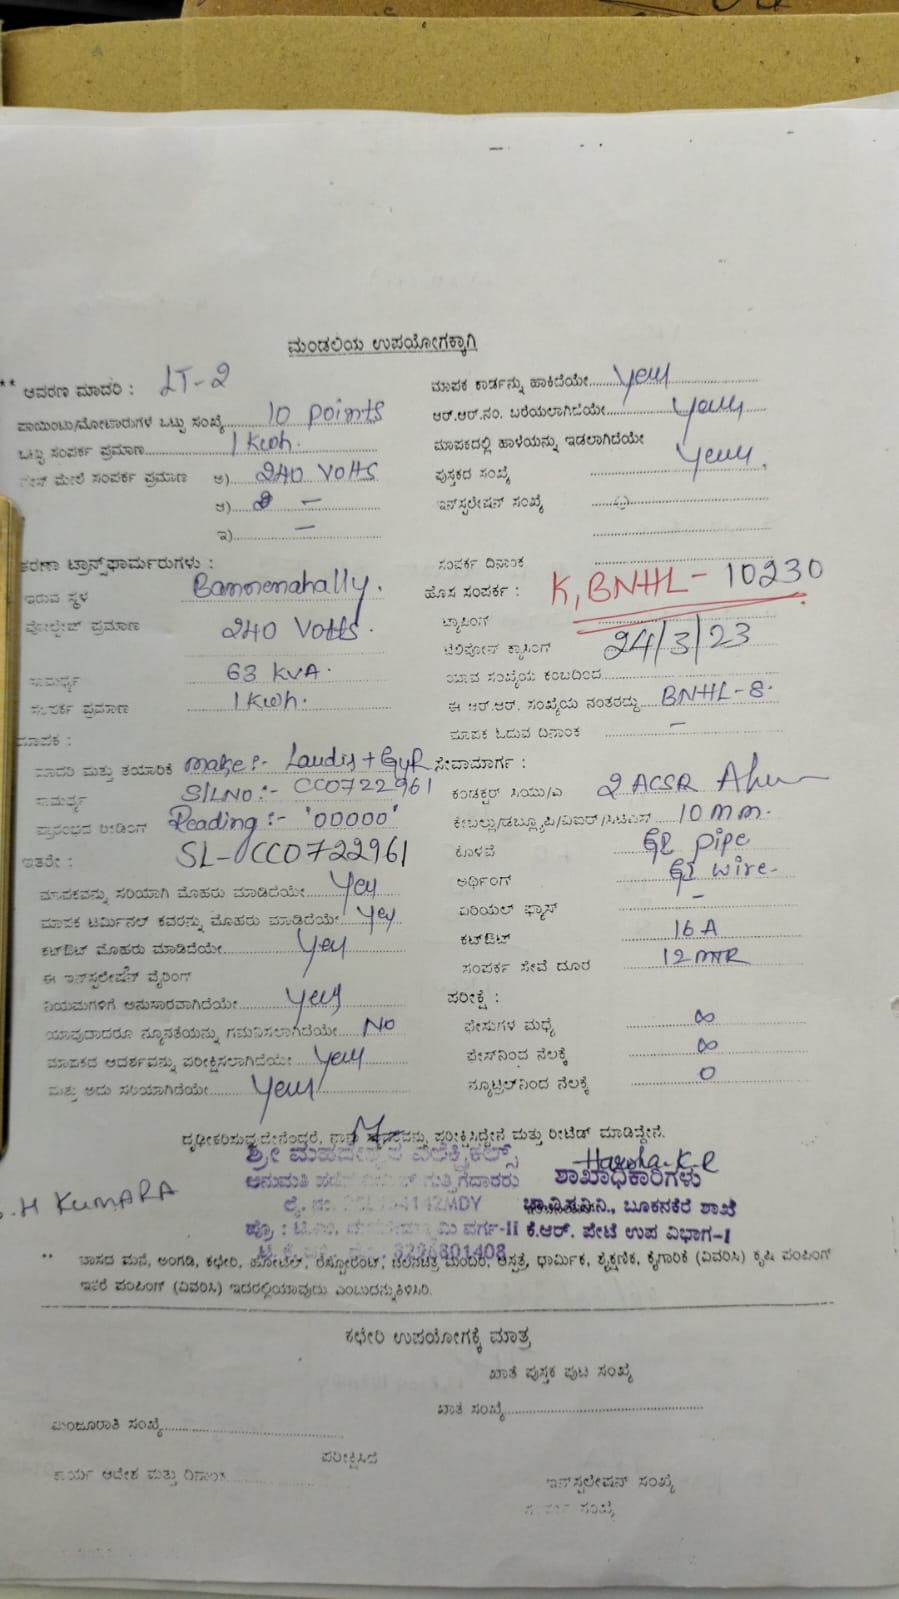 ಮಂಡಲಿಯ ಉಪಯೋಗಕ್ಕಾಗಿ
** ಆವರಣ ಮಾದರಿ : LT-2
ಪಾಯಿಂಟು/ಮೋಟಾರುಗಳ ಒಟ್ಟು ಸಂಖ್ಯೆ 10 points
ಒಟ್ಟು ಸಂಪರ್ಕ ಪ್ರಮಾಣ 1 kwh.
ಮೇಲೆ ಸಂಪರ್ಕ ಪ್ರಮಾಣ ಅ) 240 Volts
ಆ) -
ಇ) -
ಟ್ರಾನ್ಸ್‌ಫಾರ್ಮರುಗಳು :
ಇರುವ ಸ್ಥಳ Bannenahally.
ವೋಲ್ಟೇಜ್ ಪ್ರಮಾಣ 240 Volts.
ಸಾಮರ್ಥ್ಯ 63 KVA.
ಸಂಪರ್ಕ ಪ್ರಮಾಣ 1 kwh.
ಮಾಪಕ :
ಮಾದರಿ ಮತ್ತು ತಯಾರಿಕೆ make:- Landis + GyR
ಸಾಮರ್ಥ್ಯ S/LNO:- CC0722961
ಪ್ರಾರಂಭದ ರೀಡಿಂಗ್ Reading:- '00000'
ಇತರೇ : SL-CC0722961
ಮಾಪಕವನ್ನು ಸರಿಯಾಗಿ ಮೊಹರು ಮಾಡಿದೆಯೇ Yes
ಮಾಪಕ ಟರ್ಮಿನಲ್ ಕವರನ್ನು ಮೊಹರು ಮಾಡಿದೆಯೇ Yes
ಕಟ್‌ಔಟ್ ಮೊಹರು ಮಾಡಿದೆಯೇ Yes
ಈ ಇನ್‌ಸ್ಟಲೇಷನ್ ವೈರಿಂಗ್
ನಿಯಮಗಳಿಗೆ ಅನುಸಾರವಾಗಿದೆಯೇ Yes
ಯಾವುದಾದರೂ ನ್ಯೂನತೆಯನ್ನು ಗಮನಿಸಲಾಗಿದೆಯೇ No
ಮಾಪಕದ ಆದರ್ಶವನ್ನು ಪರೀಕ್ಷಿಸಲಾಗಿದೆಯೇ Yes
ಮತ್ತು ಅದು ಸರಿಯಾಗಿದೆಯೇ Yes
ಮಾಪಕ ಕಾರ್ಡನ್ನು ಹಾಕಿದೆಯೇ Yes
ಆರ್.ಆರ್.ನಂ. ಬರೆಯಲಾಗಿದೆಯೇ Yes
ಮಾಪಕದಲ್ಲಿ ಹಾಳೆಯನ್ನು ಇಡಲಾಗಿದೆಯೇ Yes
ಪುಸ್ತಕದ ಸಂಖ್ಯೆ
ಇನ್‌ಸ್ಟಲೇಷನ್ ಸಂಖ್ಯೆ
ಸಂಪರ್ಕ ದಿನಾಂಕ
ಹೊಸ ಸಂಪರ್ಕ : K,BNHL-10230
ಟ್ಯಾಪಿಂಗ್
ಟೆಲಿಫೋನ್ ಕ್ರಾಸಿಂಗ್ 24/3/23
ಯಾವ ಸಂಖ್ಯೆಯ ಕಂಬದಿಂದ
ಈ ಆರ್.ಆರ್. ಸಂಖ್ಯೆಯ ನಂತರದ್ದು BNHL-8.
ಮಾಪಕ ಓದುವ ದಿನಾಂಕ -
ಸೇವಾಮಾರ್ಗ :
ಕಂಡಕ್ಟರ್ ಸಿಯು/ಎ 2 ACSR
ಕೇಬಲ್ಲು/ಡಬ್ಲ್ಯೂಪಿ/ವಿಐಆರ್/ಸಿಟಿಎಸ್ 10 mm.
ಕೊಳವೆ GI pipe
ಅರ್ಥಿಂಗ್ GI wire-
ಏರಿಯಲ್ ಫ್ಯೂಸ್ -
ಕಟ್‌ಔಟ್ 16 A
ಸಂಪರ್ಕ ಸೇವೆ ದೂರ 12 MTR
ಪರೀಕ್ಷೆ :
ಫೇಸುಗಳ ಮಧ್ಯೆ ∞
ಫೇಸ್‌ನಿಂದ ನೆಲಕ್ಕೆ ∞
ನ್ಯೂಟ್ರಲ್‌ನಿಂದ ನೆಲಕ್ಕೆ 0
ದೃಢೀಕರಿಸುವುದೇನೆಂದರೆ, ನಾನು ಪರೀಕ್ಷಿಸಿದ್ದೇನೆ ಮತ್ತು ರೀಟೆಡ್ ಮಾಡಿದ್ದೇನೆ.
Harsha.K.R
H KUMARA
ಶಾಖಾಧಿಕಾರಿಗಳು
ಚಾ.ವಿ.ಸ.ನಿ.ನಿ., ಬೂಕನಕೆರೆ ಶಾಖೆ
ಕೆ.ಆರ್. ಪೇಟೆ ಉಪ ವಿಭಾಗ-1
ವರ್ಗ-II
3226801408
** ವಾಸದ ಮನೆ, ಅಂಗಡಿ, ಕಛೇರಿ, ಹೋಟೆಲ್, ರೆಸ್ಟೋರೆಂಟ್, ಚಲನಚಿತ್ರ ಮಂದಿರ, ಆಸ್ಪತ್ರೆ, ಧಾರ್ಮಿಕ, ಶೈಕ್ಷಣಿಕ, ಕೈಗಾರಿಕೆ (ವಿವರಿಸಿ) ಕೃಷಿ ಪಂಪಿಂಗ್
ಇತರೆ ಪಂಪಿಂಗ್ (ವಿವರಿಸಿ) ಇದರಲ್ಲಿಯಾವುದು ಎಂಬುದನ್ನು ತಿಳಿಸಿರಿ.
ಕಛೇರಿ ಉಪಯೋಗಕ್ಕೆ ಮಾತ್ರ
ಖಾತೆ ಪುಸ್ತಕ ಪುಟ ಸಂಖ್ಯೆ
ಖಾತೆ ಸಂಖ್ಯೆ
ಮಂಜೂರಾತಿ ಸಂಖ್ಯೆ
ಪರೀಕ್ಷಿಸಿದೆ
ಕಾರ್ಯ ಆದೇಶ ಮತ್ತು ದಿನಾಂಕ
ಇನ್‌ಸ್ಟಲೇಷನ್ ಸಂಖ್ಯೆ